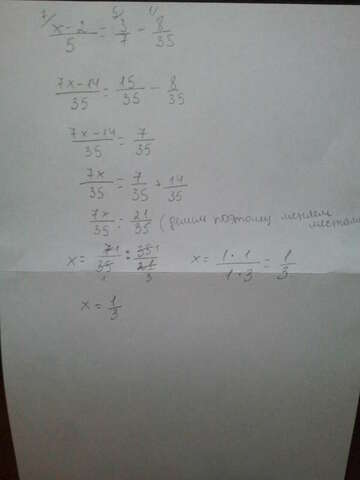 7/ 5/ 1/
x-2/5 = 3/7 - 8/35
7x-14/35 = 15/35 - 8/35
7x-14/35 = 7/35
7x/35 = 7/35 + 14/35
7x/35 = 21/35 (делим поэтому меняем местами
x = 71/35 : 351/21 3 x = 1·1/1·3 = 1/3
x = 1/3